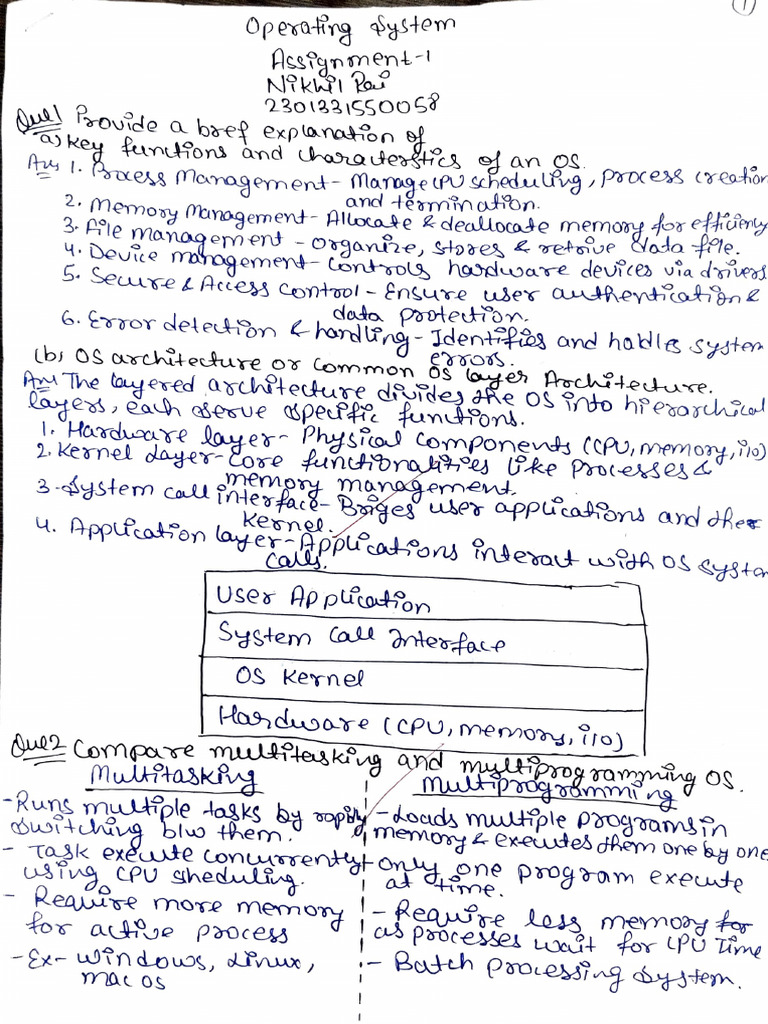 1
Operating System
Assignment-1
Nikhil Rai
2301331550058
Que1 Provide a bref explanation of
a) Key functions and characterstics of an OS.
Ans 1. Process Management - Manage CPU scheduling, process creation
and termination.
2. Memory Management - Allocate & deallocate memory for efficiency
3. File management - organize, stores & retrive data file.
4. Device management - Controls hardware devices via drivers
5. Secure & Access Control - Ensure user authentication &
data protection.
6. Error detection & handling - Identifies and hables system
errors.
(b) OS architecture or common OS layer Architecture.
Ans The layered architecture divides the OS into hierarchical
layers, each serve specific functions.
1. Hardware layer - Physical components (CPU, memory, i/o)
2. Kernel Layer - Core functionalities like processes &
memory management.
3. System call interface - Briges user applications and the
kernel.
4. Application layer - Applications interact with OS system
calls.
User Application
System Call Interface
OS Kernel
Hardware (CPU, memory, i/o)
Que2 Compare multitasking and multiprogramming OS.
Multitasking
- Runs multiple tasks by rapidly
switching b/w them.
- Task execute concurrently
using CPU sheduling.
- Require more memory
for active process
- Ex- windows, Linux,
mac OS
Multiprogramming
- Loads multiple programs in
memory & executes them one by one
- only one program execute
at time.
- Require less memory for
as processes wait for CPU Time
- Batch processing system.